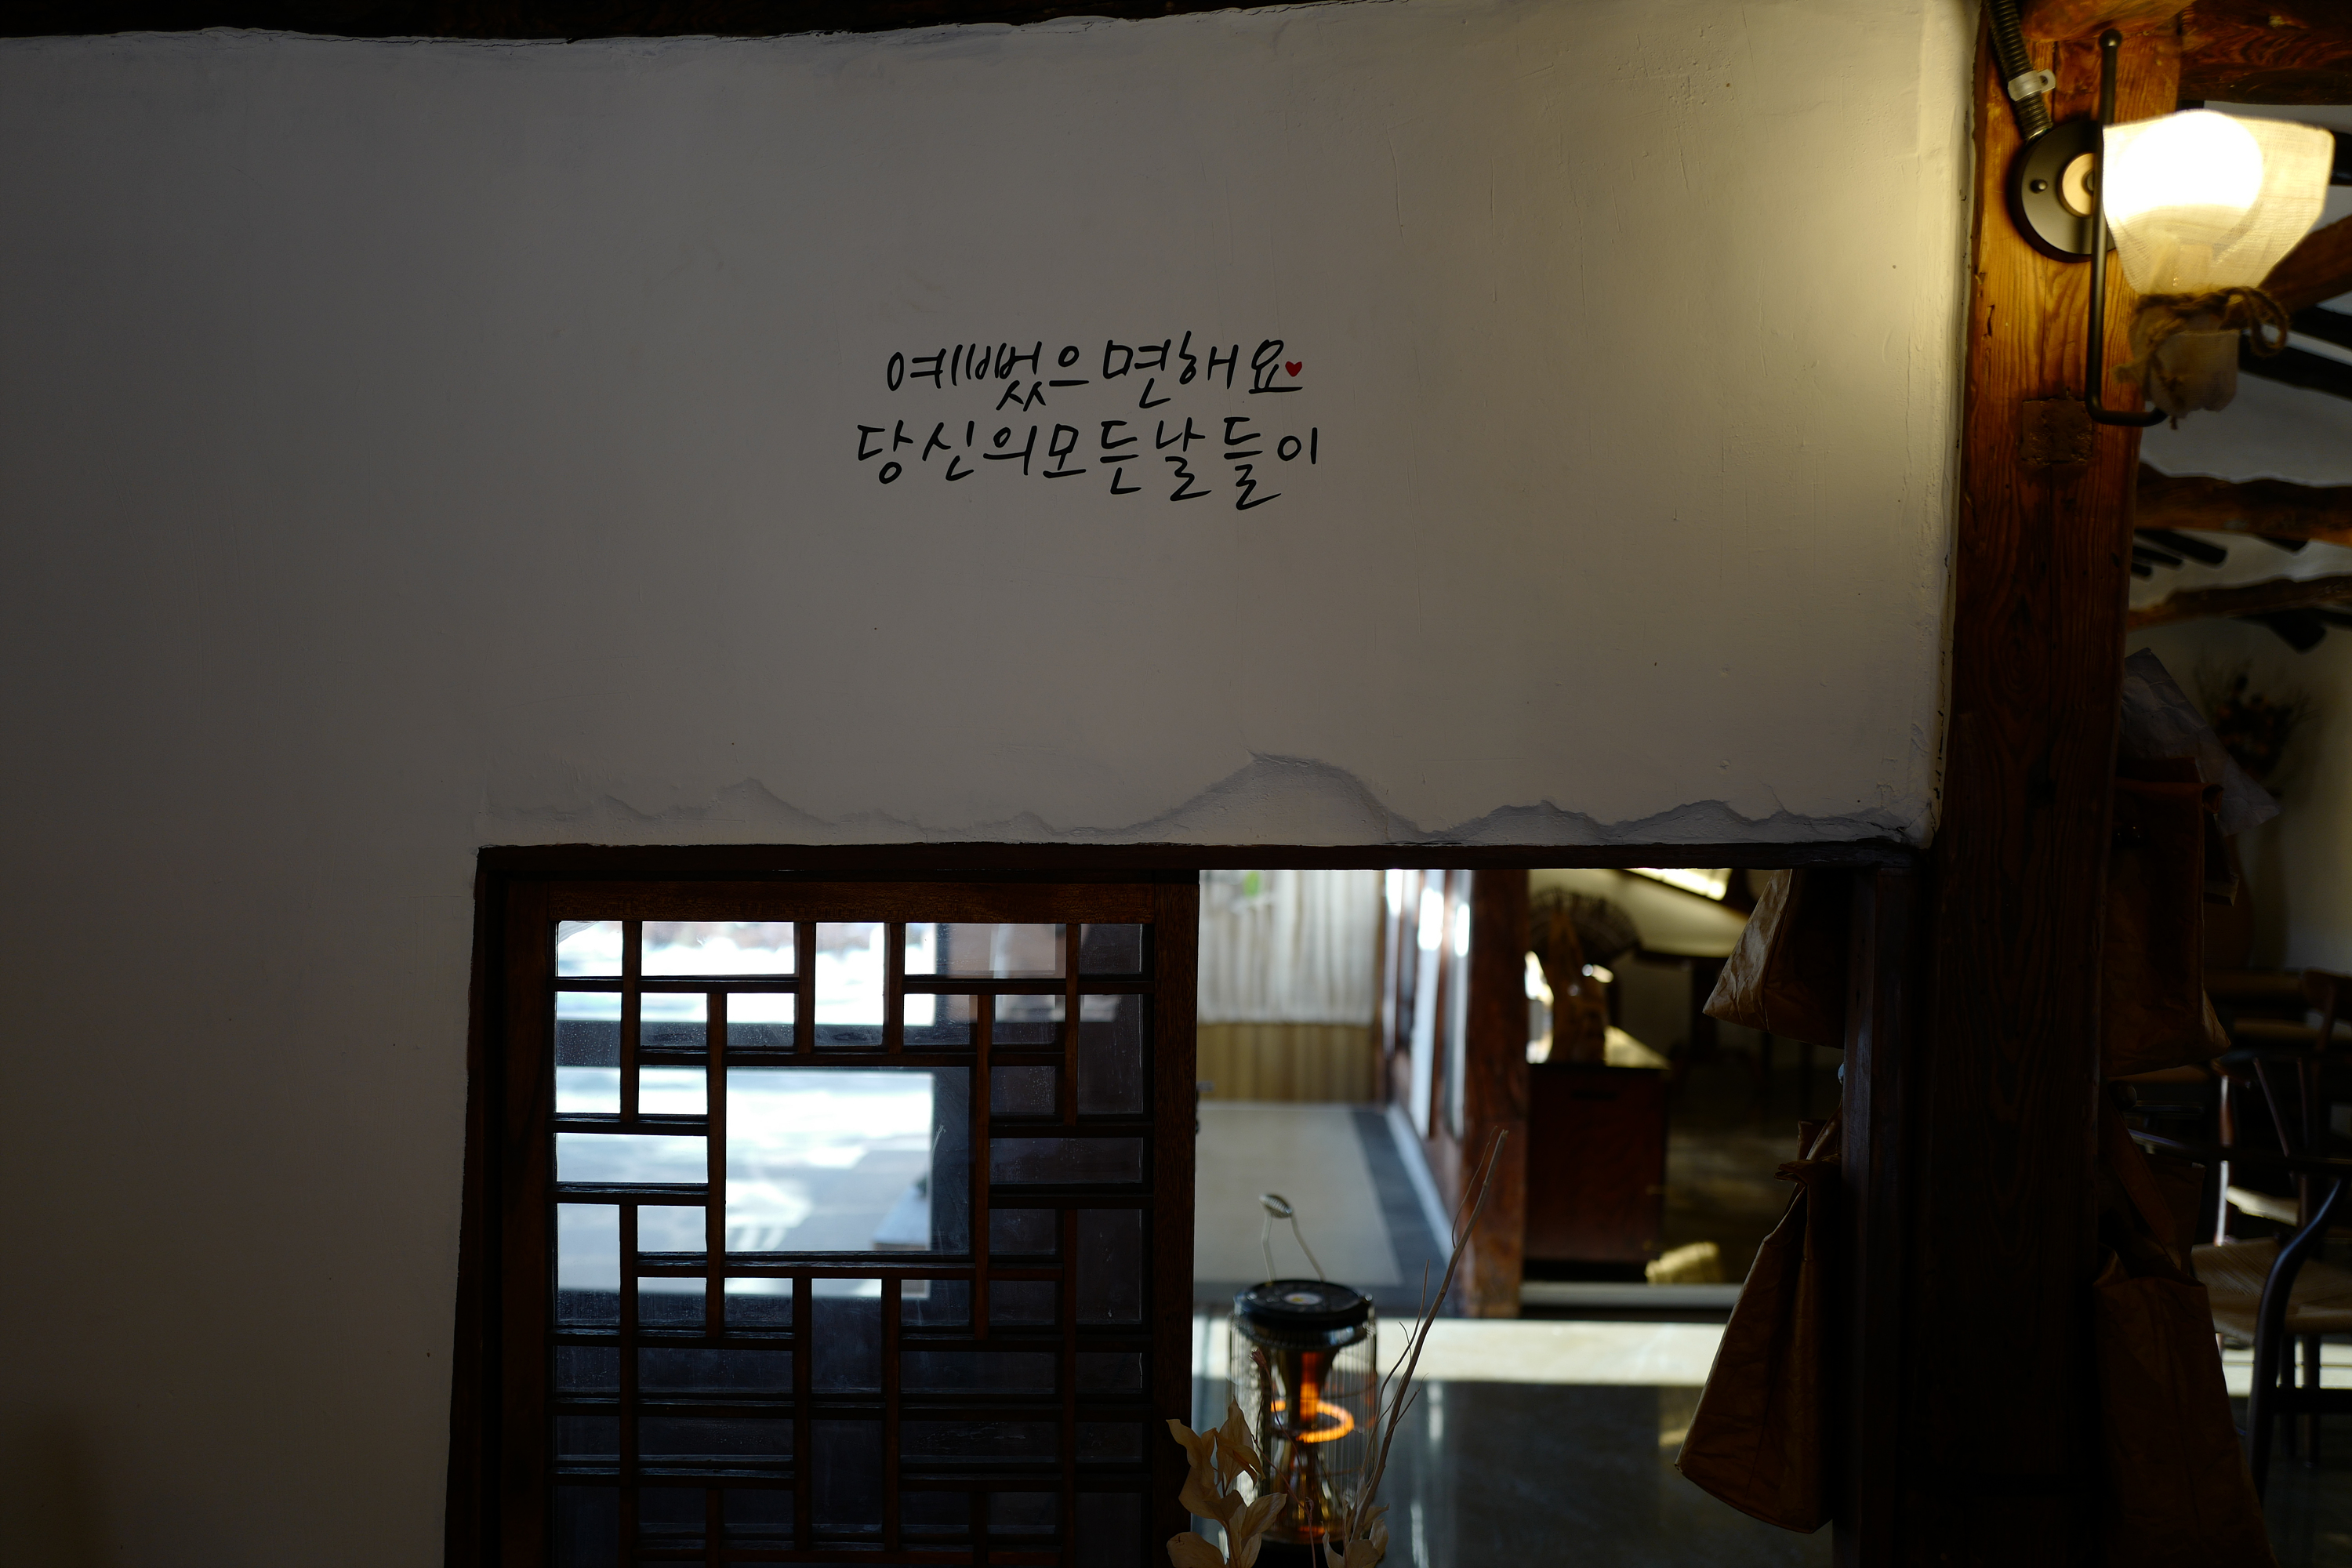 예뻤으면해요
당신의모든날들이